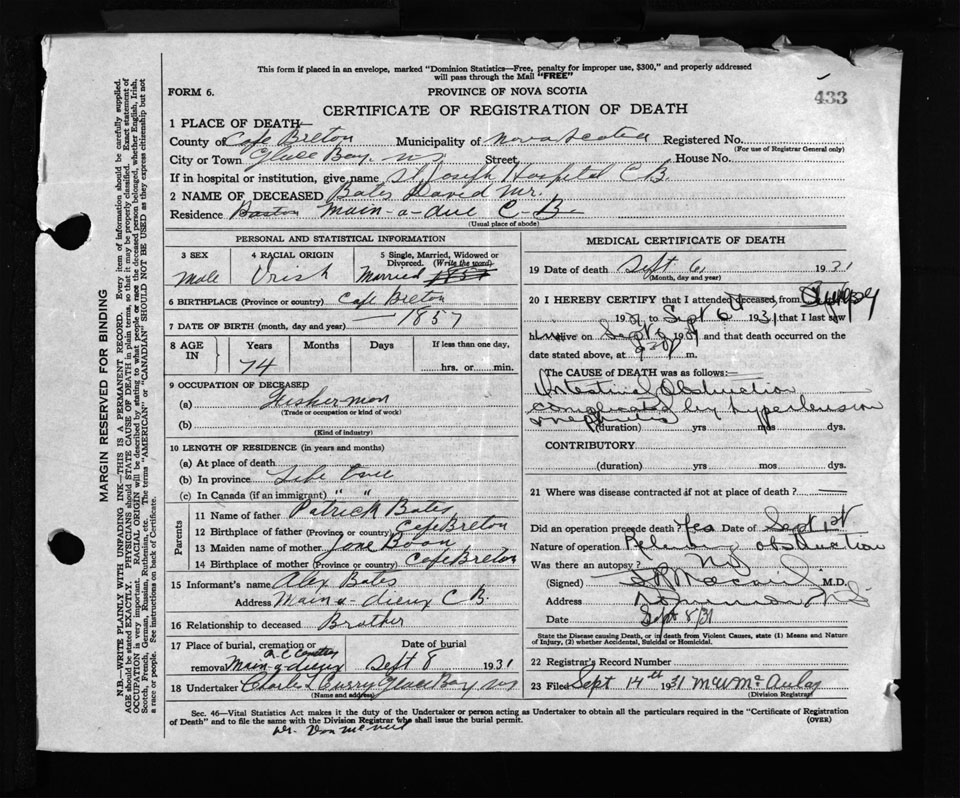 This form if placed in an envelope, marked "Dominion Statistics—Free, penalty for improper use, $300," and properly addressed
will pass through the Mail "FREE"
FORM 6.
PROVINCE OF NOVA SCOTIA
433
CERTIFICATE OF REGISTRATION OF DEATH
1 PLACE OF DEATH—
County of Cape Breton Municipality of Nova Scotia Registered No.
(For use of Registrar General only)
City or Town Glace Bay. N.S. Street, House No.
If in hospital or institution, give name St. Joseph Hospital C B.
2 NAME OF DECEASED Bates David Mr.
Residence Boston Main-a-due C-B-
(Usual place of abode)
PERSONAL AND STATISTICAL INFORMATION
3 SEX 4 RACIAL ORIGIN 5 Single, Married, Widowed or
Divorced. (Write the word)
Male Irish Married
6 BIRTHPLACE (Province or country) Cape Breton
7 DATE OF BIRTH (month, day and year) — 1857
8 AGE IN Years Months Days If less than one day,
74 hrs. or min.
9 OCCUPATION OF DECEASED
(a) Fisherman
(Trade or occupation or kind of work)
(b)
(Kind of industry)
10 LENGTH OF RESIDENCE (in years and months)
(a) At place of death
(b) In province Life
(c) In Canada (if an immigrant) " "
Parents
11 Name of father Patrick Bates
12 Birthplace of father (Province or country) Cape Breton
13 Maiden name of mother Jane
14 Birthplace of mother (Province or country) Cape Breton
15 Informant's name Alex Bates
Address Main-a-dieu C B.
16 Relationship to deceased Brother
17 Place of burial, cremation or Date of burial
removal Main-a-dieu Sept 8 1931
18 Undertaker Charles Curry Glace Bay NS
(Name and address)
MEDICAL CERTIFICATE OF DEATH
19 Date of death Sept 6, 1931
(Month, day and year)
20 I HEREBY CERTIFY that I attended deceased from
1931 to Sept 6 1931 that I last saw
him alive on Sept 6 1931 and that death occurred on the
date stated above, at m.
The CAUSE OF DEATH was as follows:—
Intestinal Obstruction
complicated by hypertension
nephritis
(duration) yrs mos dys.
CONTRIBUTORY
(duration) yrs mos dys.
21 Where was disease contracted if not at place of death?
Did an operation precede death Yes Date of Sept 1st
Nature of operation obstruction
Was there an autopsy? No
(Signed) M.D.
Address
Date Sept 8/31
State the Disease causing Death, or in death from Violent Causes, state (1) Means and Nature
of Injury, (2) whether Accidental, Suicidal or Homicidal.
22 Registrar's Record Number
23 Filed Sept 14th 1931 McAulay
(Division Registrar)
Sec. 46—Vital Statistics Act makes it the duty of the Undertaker or person acting as Undertaker to obtain all the particulars required in the "Certificate of Registration
of Death" and to file the same with the Division Registrar who shall issue the burial permit. (OVER)
MARGIN RESERVED FOR BINDING
N.B.—WRITE PLAINLY WITH UNFADING INK—THIS IS A PERMANENT RECORD. Every item of information should be carefully supplied.
AGE should be stated EXACTLY. PHYSICIANS should STATE CAUSE OF DEATH in plain terms, so that it may be properly classified. Exact statement of
OCCUPATION is very important. RACIAL ORIGIN will be described by stating to what people or race the deceased person belonged, whether English, Irish,
Scotch, French, German, Russian, Ruthenian, etc. The terms "AMERICAN" or "CANADIAN" SHOULD NOT BE USED as they express citizenship but not
a race or people. See instructions on back of Certificate.